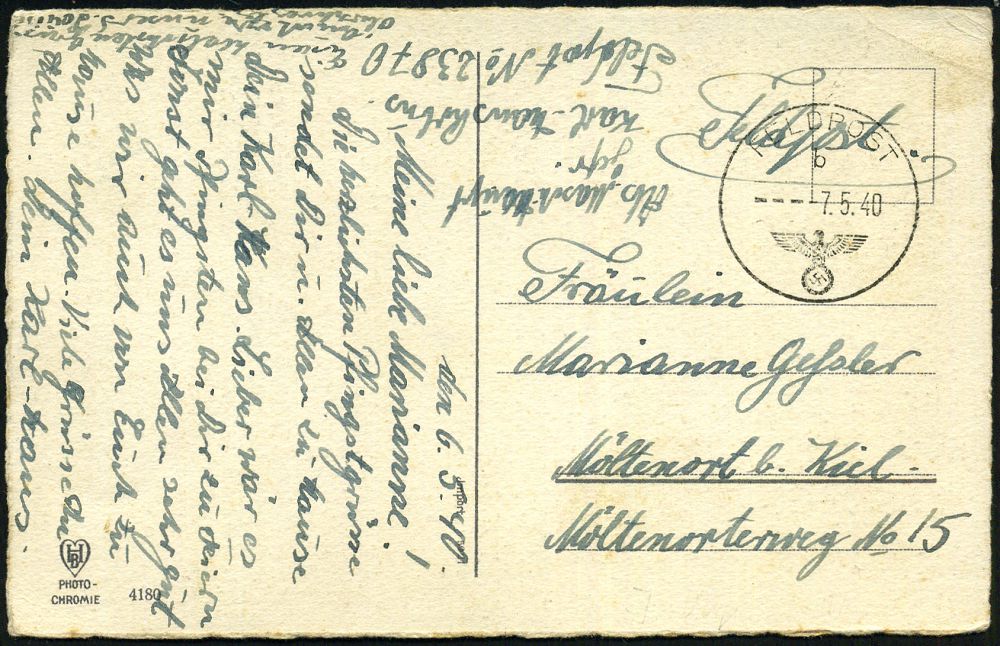 den 6. 5. 40.
Meine liebe Marianne!
Die herzlichsten Pfingstgrüße
sendet Dir u. Allen zu Hause
Dein Karl-Hans. Lieber wär es
mir Pfingsten bei Dir zu feiern
Sonst geht es uns Allen sehr gut
was wir auch von Euch zu
Hause hoffen. Viele Grüsse an
Allen. Dein Karl-Hans.
Feldpost.
FELDPOST
b
7.5.40
Abs.
Gefr.
Karl-Hans
Feldpost No 23870
Fräulein
Marianne Geßler
Möltenort b. Kiel.
Möltenorterweg No 15
HBD
PHOTO-
CHROMIE
4180